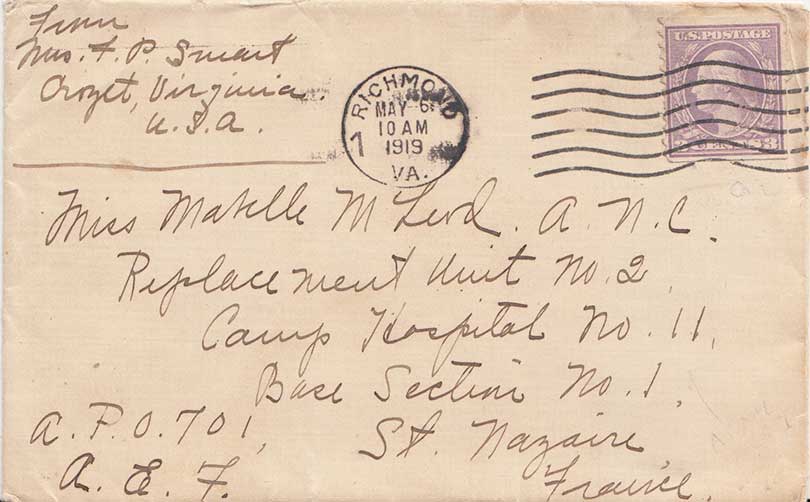 From
Mrs. F. P. Smart
Crozet, Virginia.
U. S. A.
RICHMOND
MAY 6
10 AM
1919
1
VA.
U.S. POSTAGE
3 CENTS 3
Miss Matelle McLeod. A. N. C.
Replacement Unit No. 2,
Camp Hospital No. 11,
Base Section No. 1,
A. P. O. 701,
St. Nazaire,
A. E. F.
France.